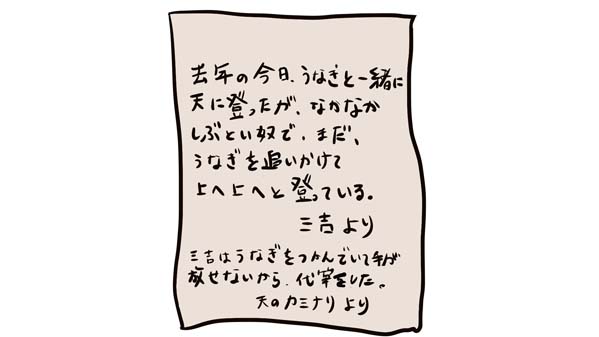 去年の今日、うなぎと一緒に
天に登ったが、なかなか
しぶとい奴で、まだ、
うなぎを追いかけて
上へ上へと登っている。
三吉より
三吉はうなぎをつかんでいて手が
放せないから、代筆をした。
天のカミナリより